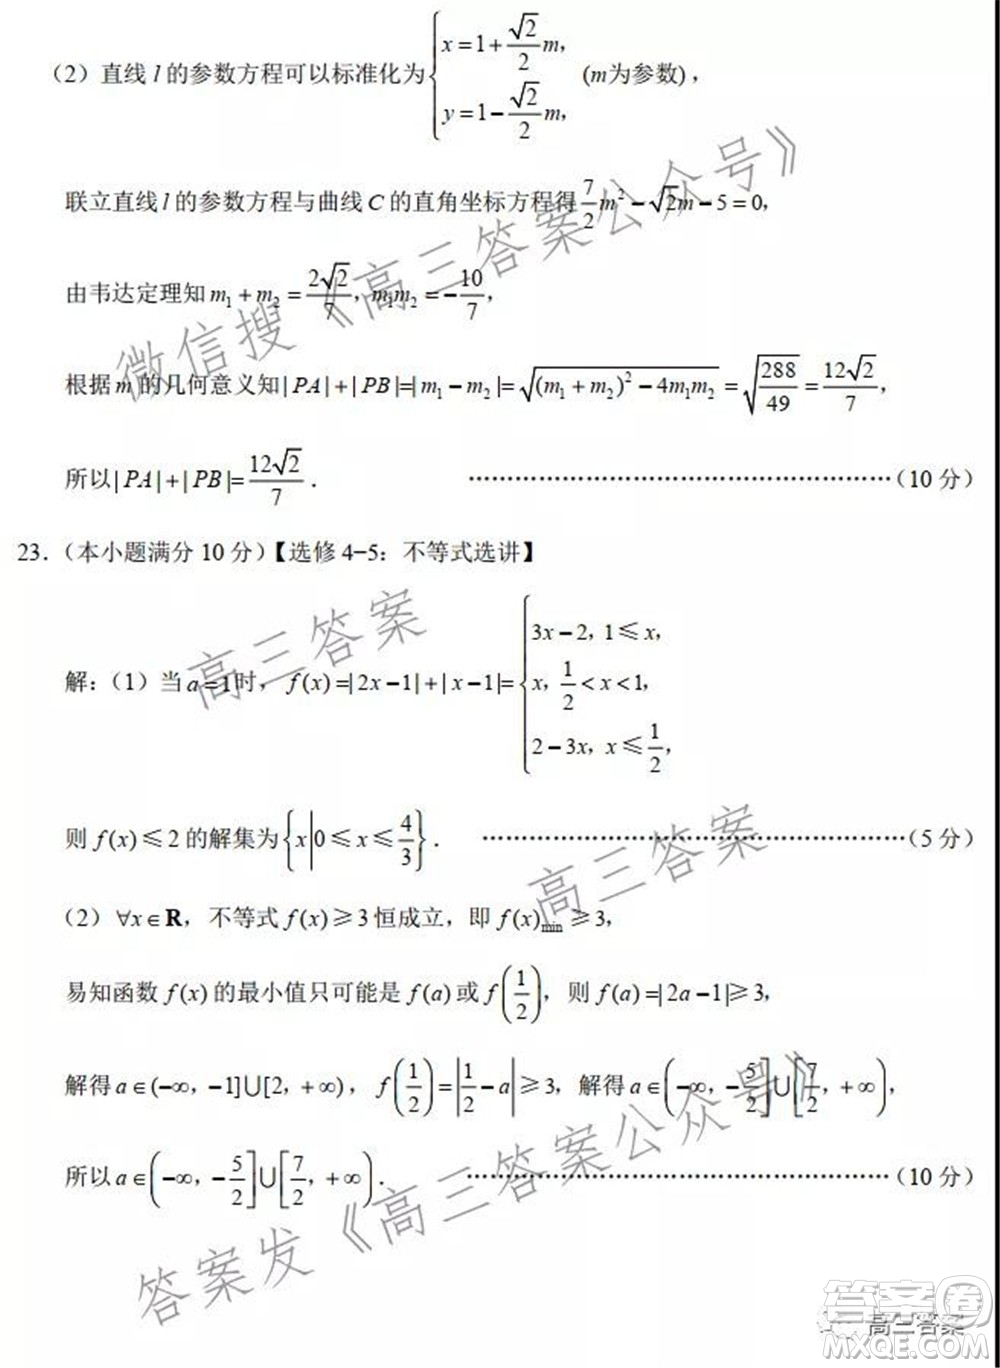 (2) 直线 l 的参数方程可以标准化为 { x=1+(√2/2)m, y=1−(√2/2)m, (m为参数),
联立直线 l 的参数方程与曲线 C 的直角坐标方程得 7/2 m²−√2m−5=0,
由韦达定理知 m₁+m₂=2√2/7, m₁m₂=−10/7,
根据 m 的几何意义知|PA|+|PB|=|m₁−m₂|=√((m₁+m₂)²−4m₁m₂)=√(288/49)=12√2/7,
所以|PA|+|PB|=12√2/7. ……………………………………………(10 分)
23. (本小题满分 10 分)【选修 4−5: 不等式选讲】
解: (1) 当 a=1时, f(x)=|2x−1|+|x−1|= { 3x−2, 1≤x, x, 1/2<x<1, 2−3x, x≤1/2,
则 f(x)≤2 的解集为 {x|0≤x≤4/3}. ……………………………………………(5 分)
(2) ∀x∈R, 不等式 f(x)≥3 恒成立, 即 f(x)min≥3,
易知函数 f(x) 的最小值只可能是 f(a) 或 f(1/2), 则 f(a)=|2a−1|≥3,
解得 a∈(−∞, −1]∪[2, +∞), f(1/2)=|1/2−a|≥3, 解得 a∈(−∞, −5/2]∪[7/2, +∞),
所以 a∈(−∞, −5/2]∪[7/2, +∞). ……………………………………………(10 分)
微信搜《高三答案公众号》
高三答案
高三答案
答案发《高三答案公众号》
高三答案
答案圈
MXQE.COM